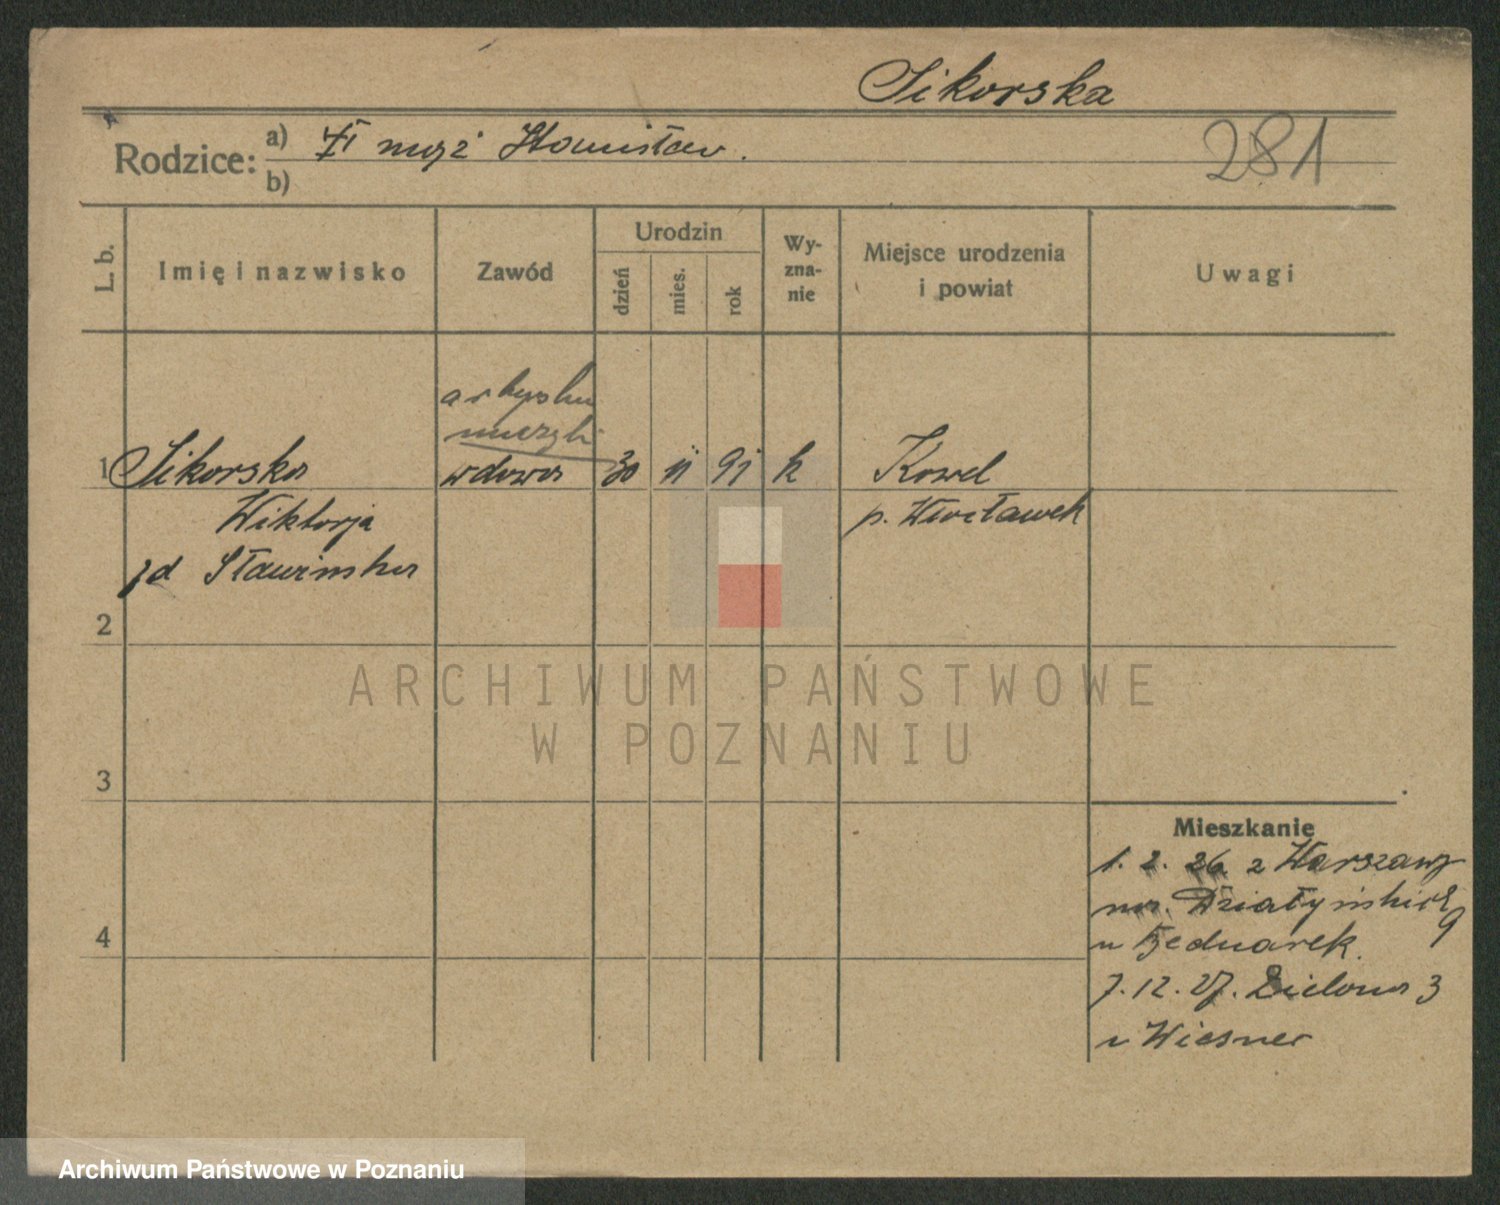 Sikorska
Rodzice: a) mąż Stanisław.
b)
281
L. b.
Imię i nazwisko
Zawód
Urodzin
dzień
mies.
rok
Wy-
zna-
nie
Miejsce urodzenia
i powiat
Uwagi
artystka
muzyki
1 Sikorska wdowa 30 11 91 k Kowal
Wiktorja p. Włocławek
zd Sławińska
2
3
4
Mieszkanie
1. 2. 26 z Warszawy
Działyńskich 9
u Bednarek.
7.12.27. Zielona 3
u Wiesner
ARCHIWUM PAŃSTWOWE
W POZNANIU
Archiwum Państwowe w Poznaniu